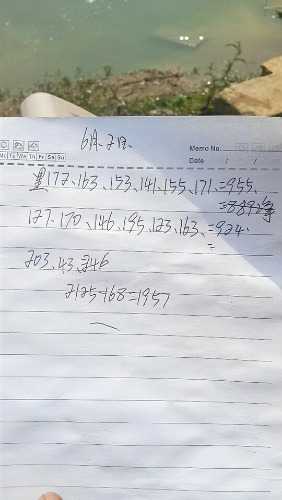 6月、2日、
Memo No.
Mo Tu We Th Fr Sa Su
Date / /
172、163、153、141、155、171、=955、
127、170、146、195、123、163、=924、
=
203、43、=246
2125-168=1957